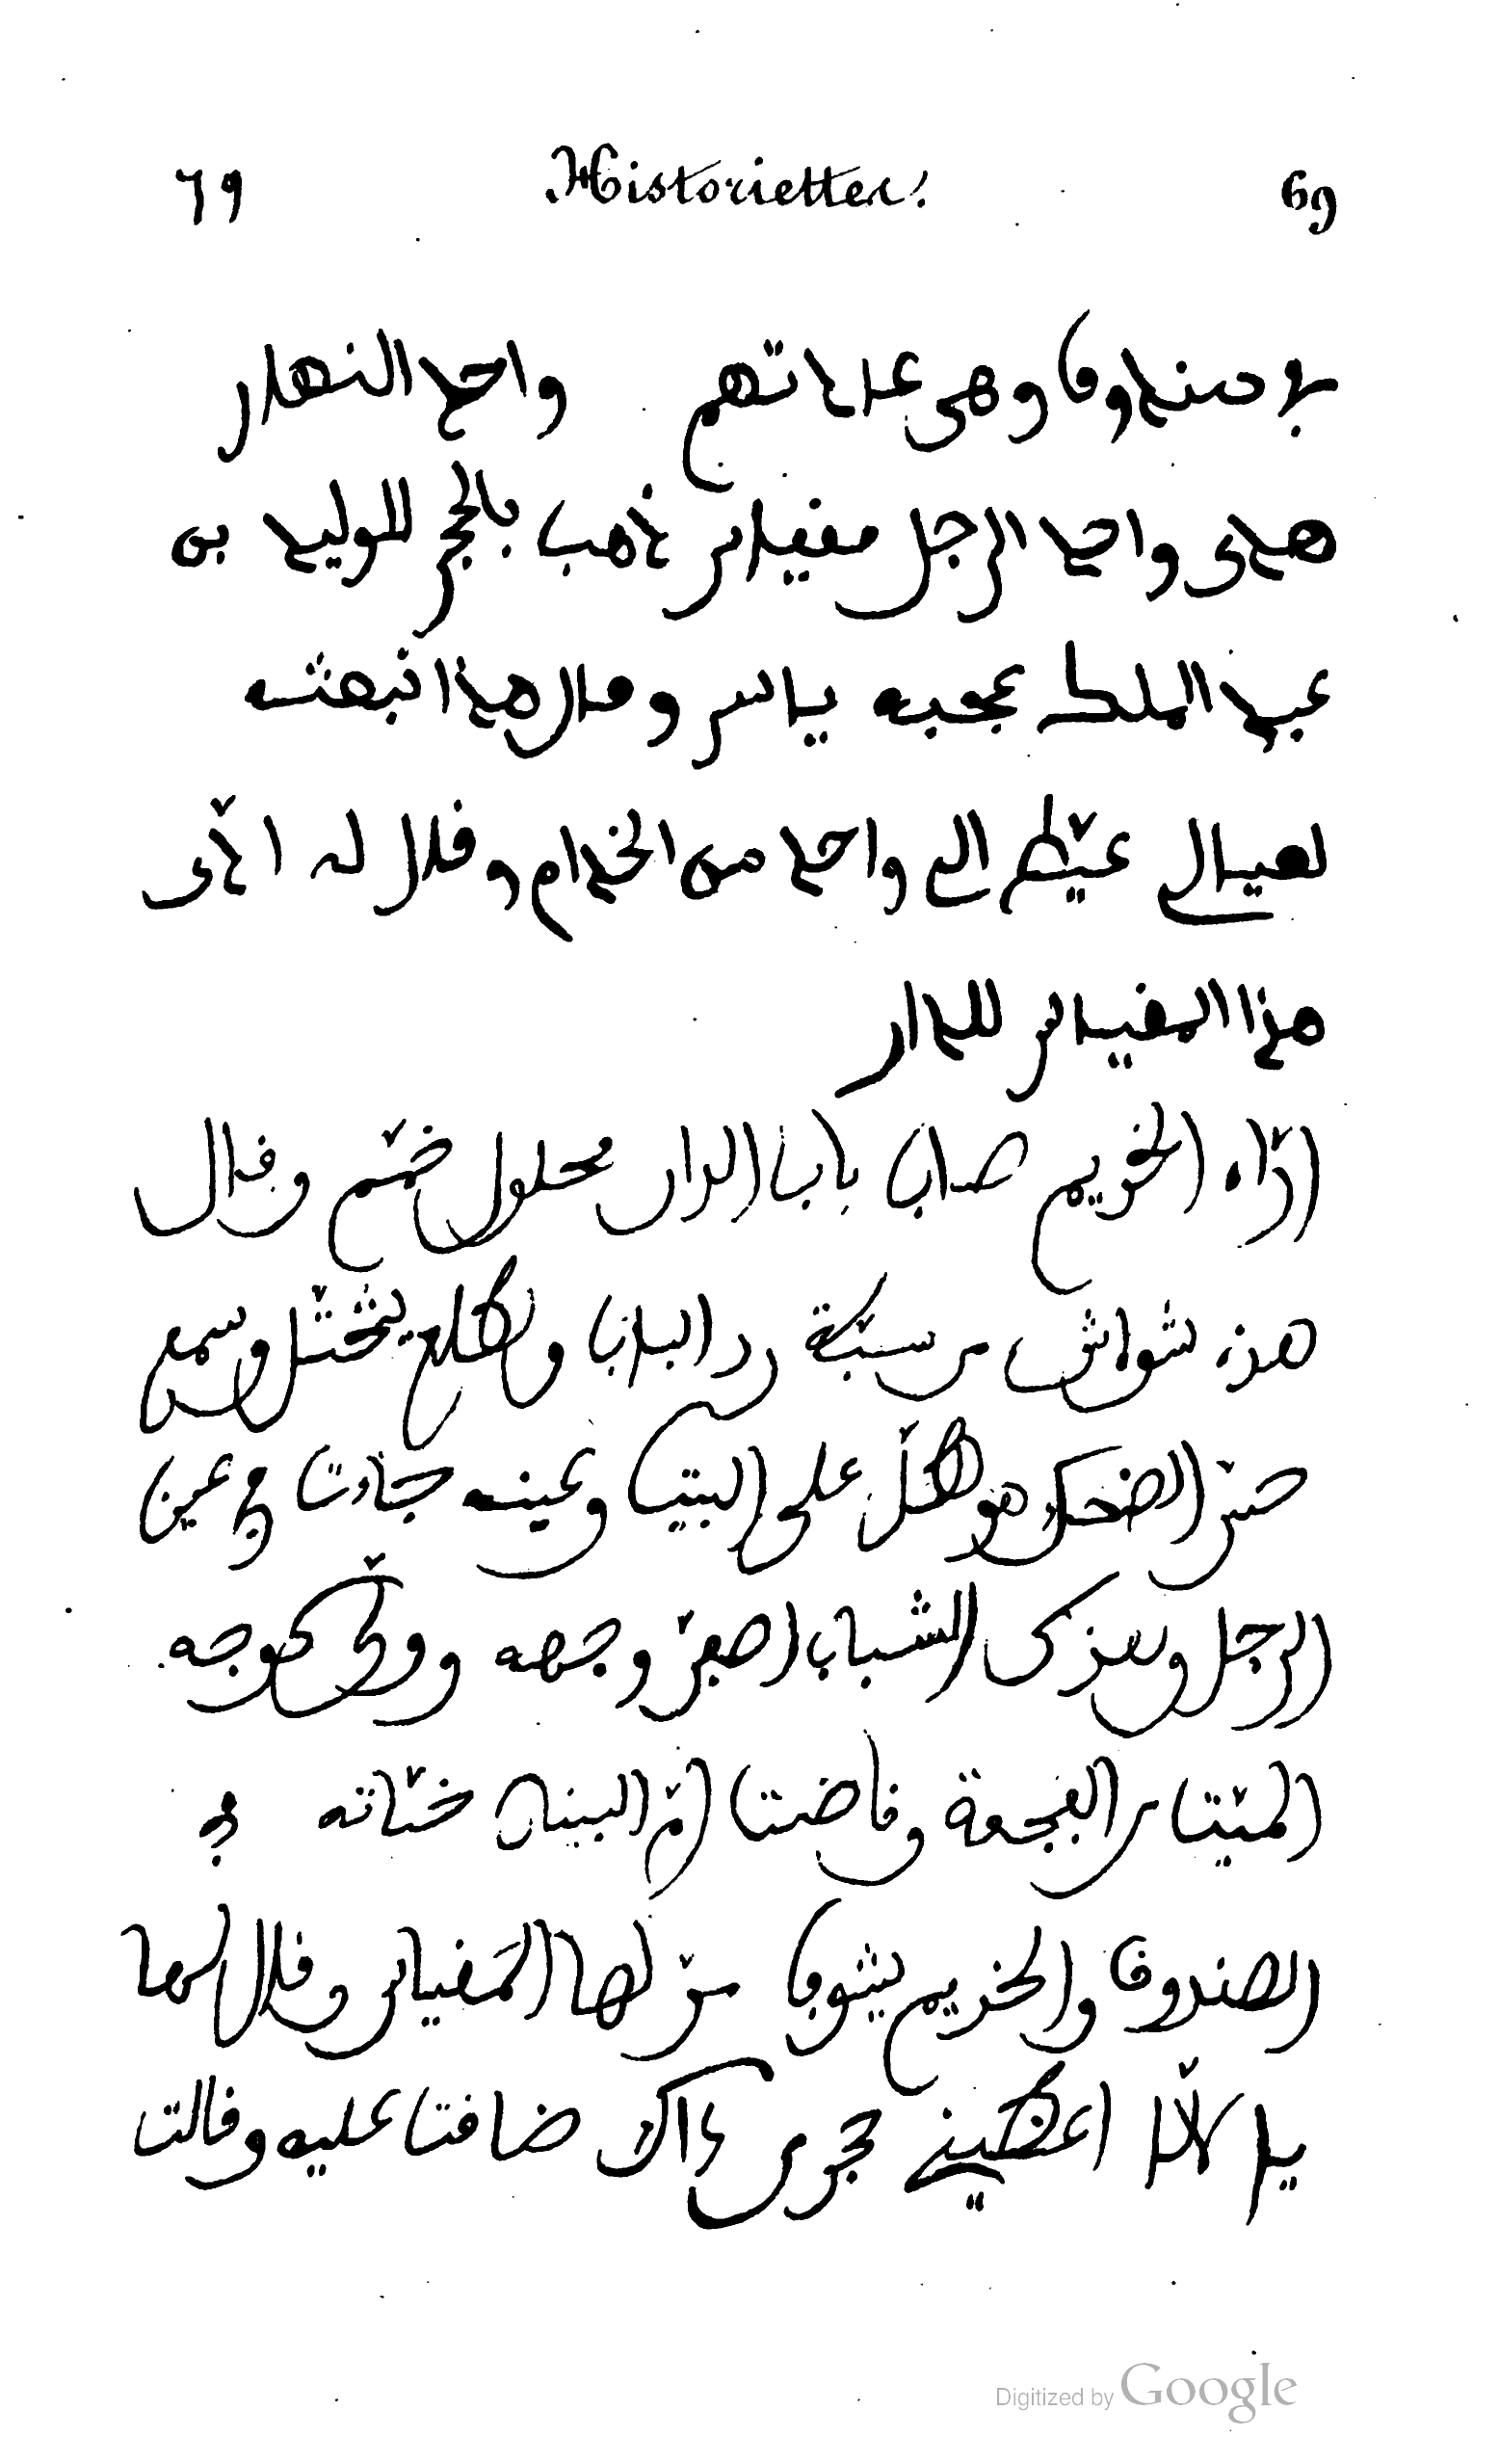 ٦٩ Historiettes. 69
في صندوق وهي عداتهم واحد النهار
هدى واحد الرجل مقياس ذهب بالحجر للوليد بن
عبد الملك عجبه ياسر وقال هذا نبعثه
لعيالي عيّط الى واحد من الخدام وقال له ادّى
هذا المقياس للدار
ادّاه الخديم صاب باب الدار محلول خمّم وقال
هذه شواش مرسكة رد الباب وطلع يختّل وسمع
حسّ الضحك هو طلّ على البيت وعينه جات في عين
الرجل وهذاك الشباب اصفرّ وجهه
الميّت من الفجعة وناضت امّ البنين خبّاته في
الصندوق والخديم يشوف مدّ لها المقياس وقال لها
يا لالّا اعطيني حجرى ذاك ضاقت عليه وقالت